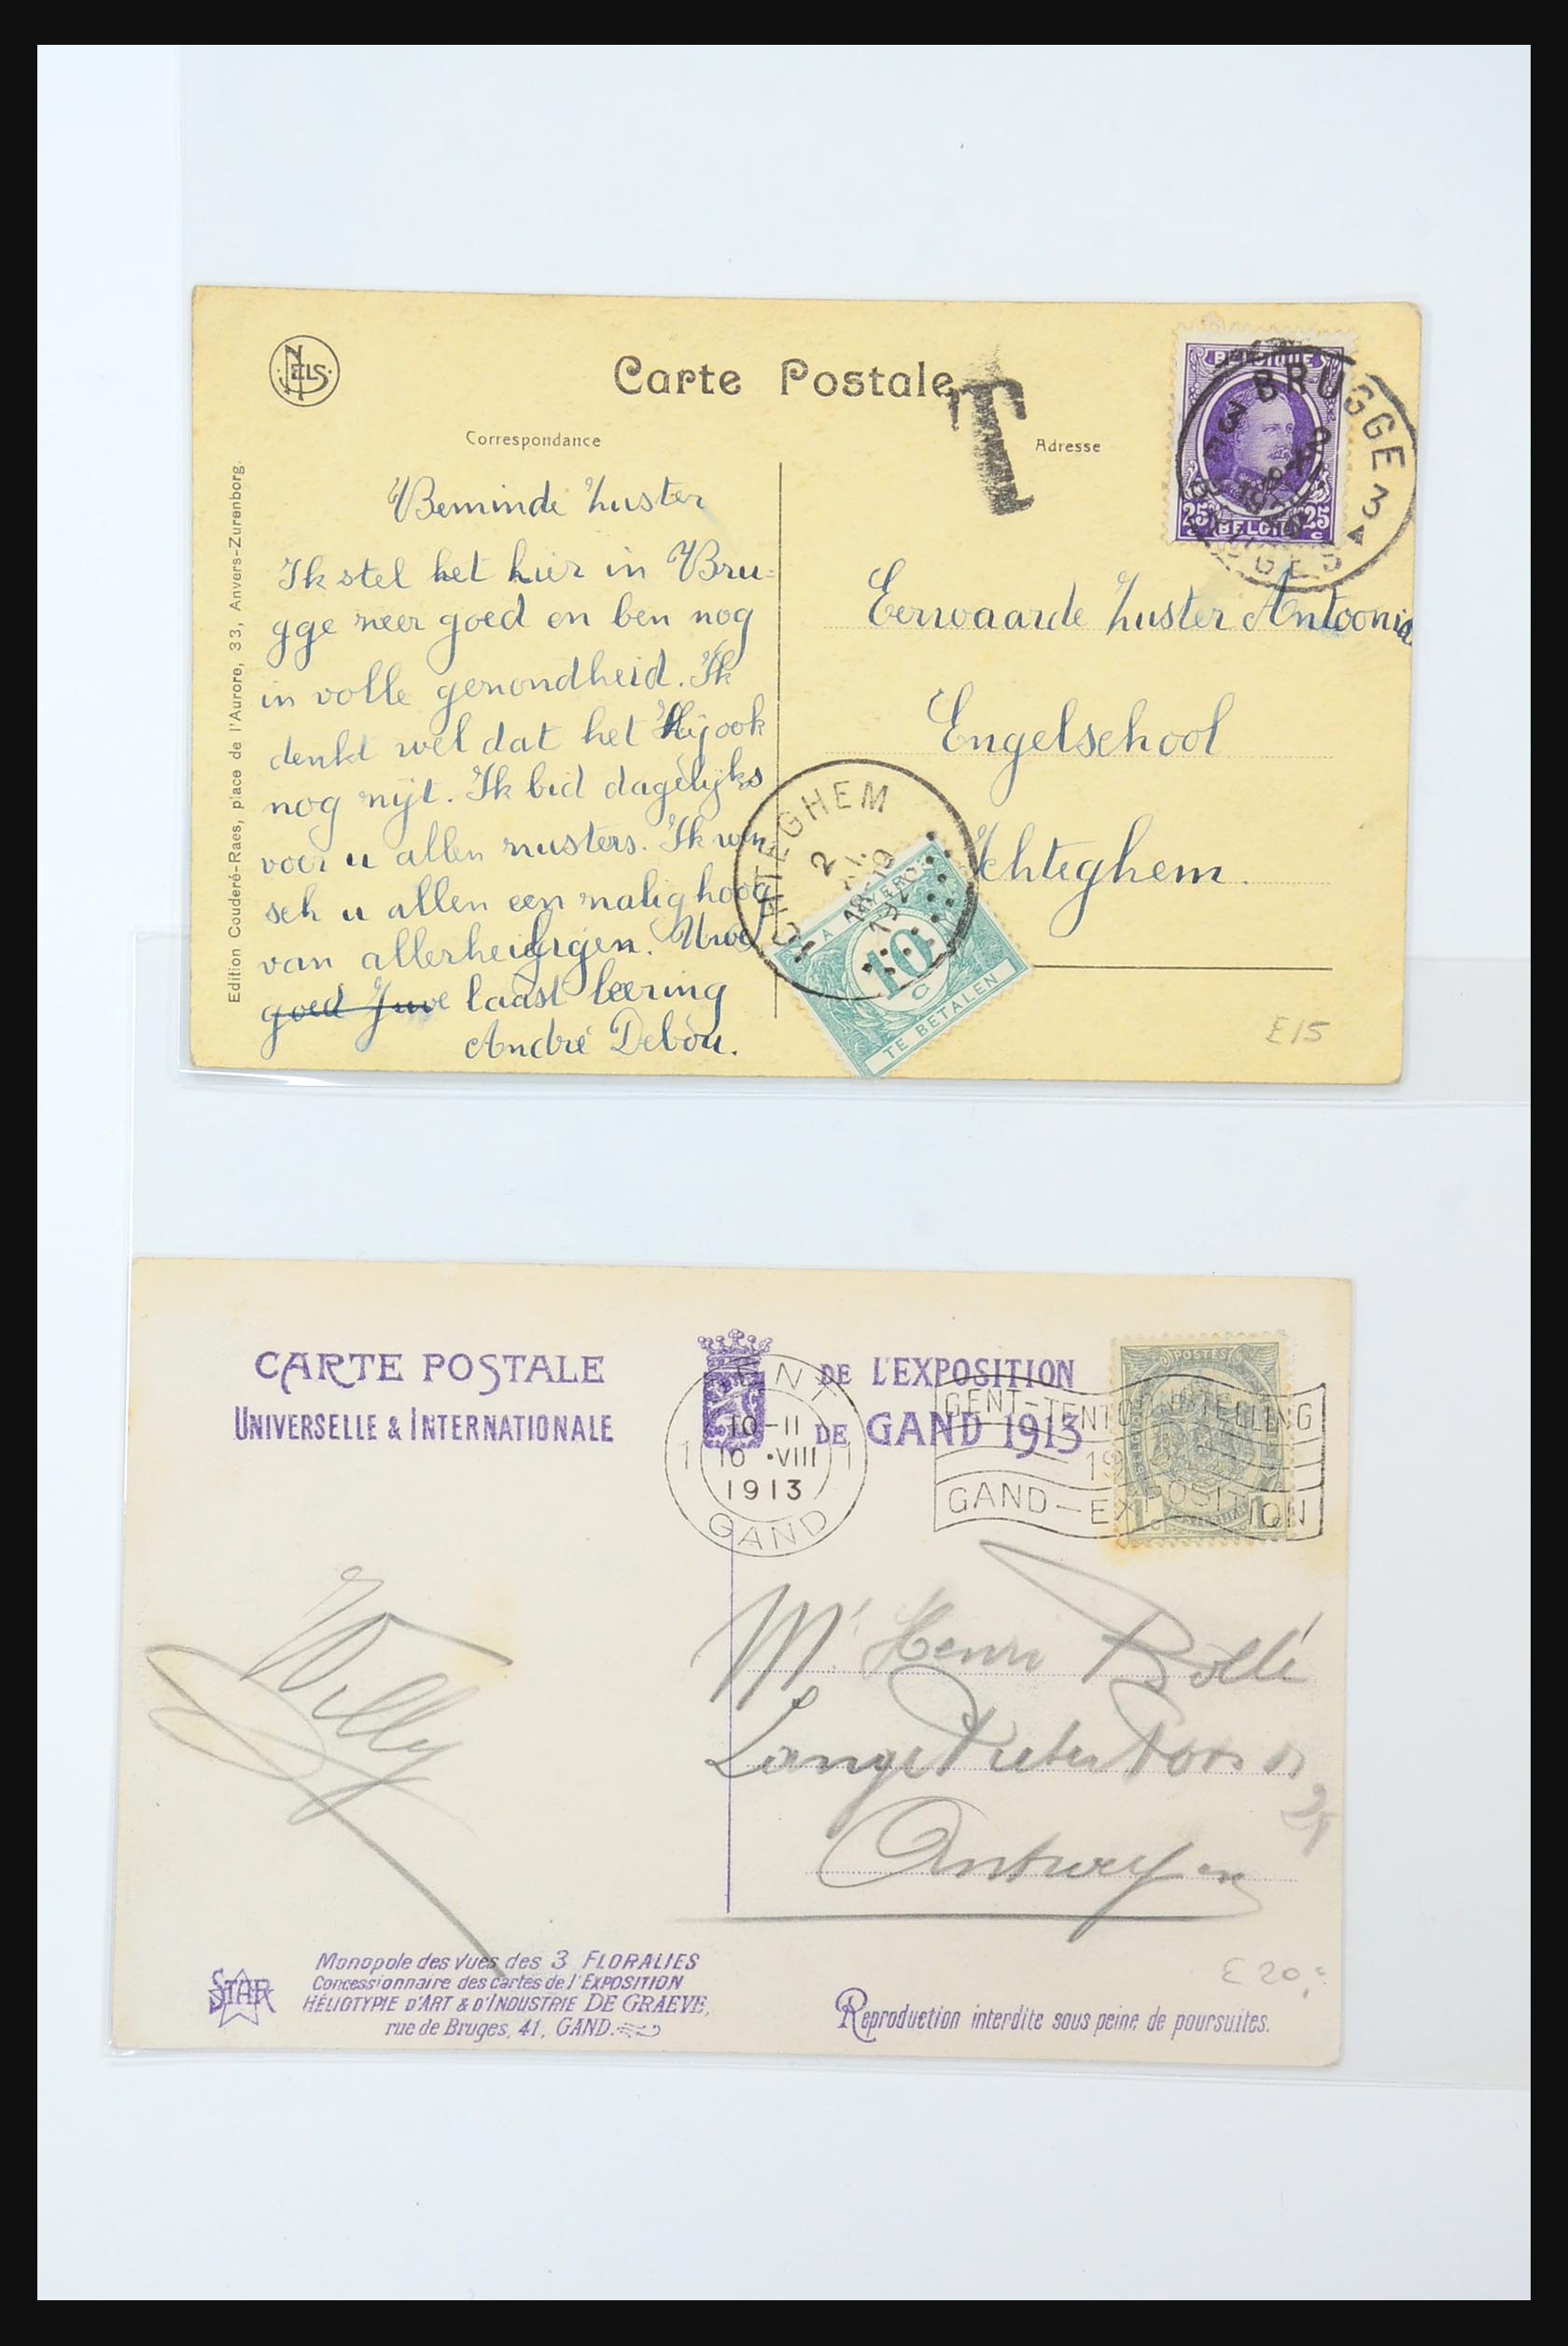 NELS
Carte Postale
T
Correspondance
Adresse
BELGIQUE
25 25
c BELGIË c
BRUGGE 3
BRUGES 3
Edition Couderé-Raes, place de l'Aurore, 33, Anvers-Zurenborg.
Beminde Zuster
Ik stel het hier in Bru=
gge zeer goed en ben nog
in volle gezondheid. Ik
denkt wel dat het Hij ook
nog zijt. Ik bid dagelijks
voor u allen zusters. Ik wen
sch u allen een zalig hoog
van allerheiligen. Uwe
goed Juwe laast leering
André Debou.
Eerwaarde Zuster Antoonia
Engelschool
Ichteghem.
ICHTEGHEM
2
A PAYER
10
c
TE BETALEN
E 15
CARTE POSTALE
UNIVERSELLE & INTERNATIONALE
DE L'EXPOSITION
DE GAND 1913
GENT
10-11
1 10 •VIII 1
1913
GAND
GENT-TENTOONSTELLING
GAND-EXPOSITION
POSTES
1 1
Willy
Mr. Henri Bollé
Lange Pieter Pots
21
Antwerpen
STAR
Monopole des vues des 3 FLORALIES
Concessionnaire des cartes de l'EXPOSITION
HÉLIOTYPIE D'ART & D'INDUSTRIE DE GRAEVE,
rue de Bruges, 41, GAND.
E 20,=
Reproduction interdite sous peine de poursuites.